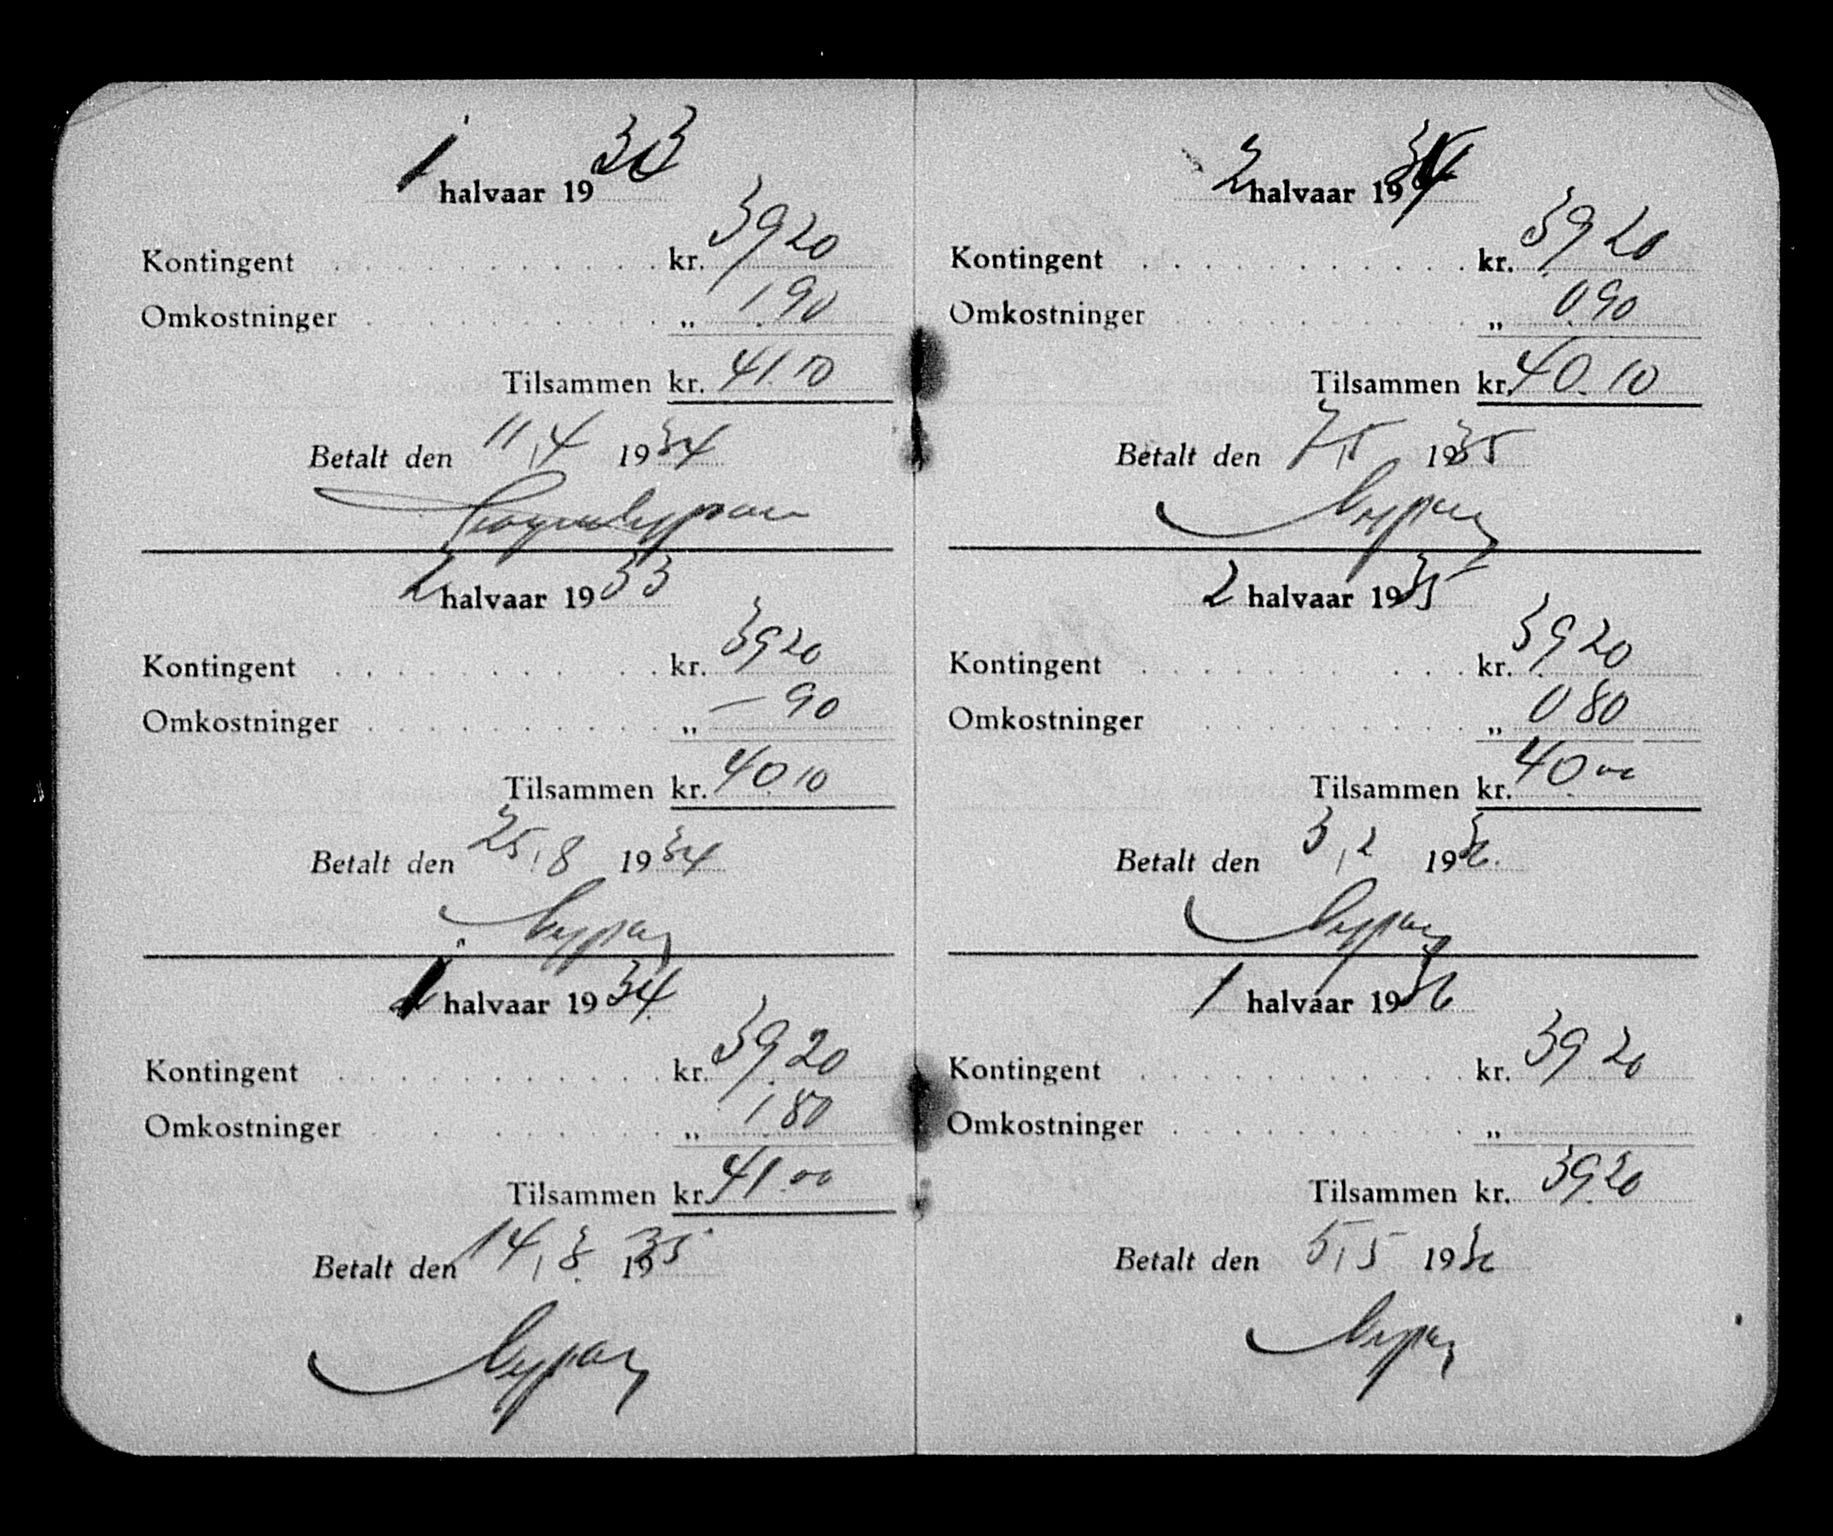 1 halvaar 1933
Kontingent . . . . . . . . . . . kr. 39 20
Omkostninger . . . . . . . . . . „ 1.90
Tilsammen kr. 41.10
Betalt den 11,4 1934
2 halvaar 1933
Kontingent . . . . . . . . . . . kr. 39 20
Omkostninger . . . . . . . . . . „ – 90
Tilsammen kr. 40.10
Betalt den 25,8 1934
1 halvaar 1934
Kontingent . . . . . . . . . . . kr. 39.20
Omkostninger . . . . . . . . . . „ 1.80
Tilsammen kr. 41.00
Betalt den 14,3 1935
2 halvaar 1934
Kontingent . . . . . . . . . . . kr. 39 20
Omkostninger . . . . . . . . . . „ 0.90
Tilsammen kr. 40.10
Betalt den 7,5 1935
2 halvaar 1935
Kontingent . . . . . . . . . . . kr. 39 20
Omkostninger . . . . . . . . . . „ 0 80
Tilsammen kr. 40.00
Betalt den 3,2 1936.
1 halvaar 1936
Kontingent . . . . . . . . . . . kr. 39 20
Omkostninger . . . . . . . . . . „
Tilsammen kr. 39.20
Betalt den 5,5 1936